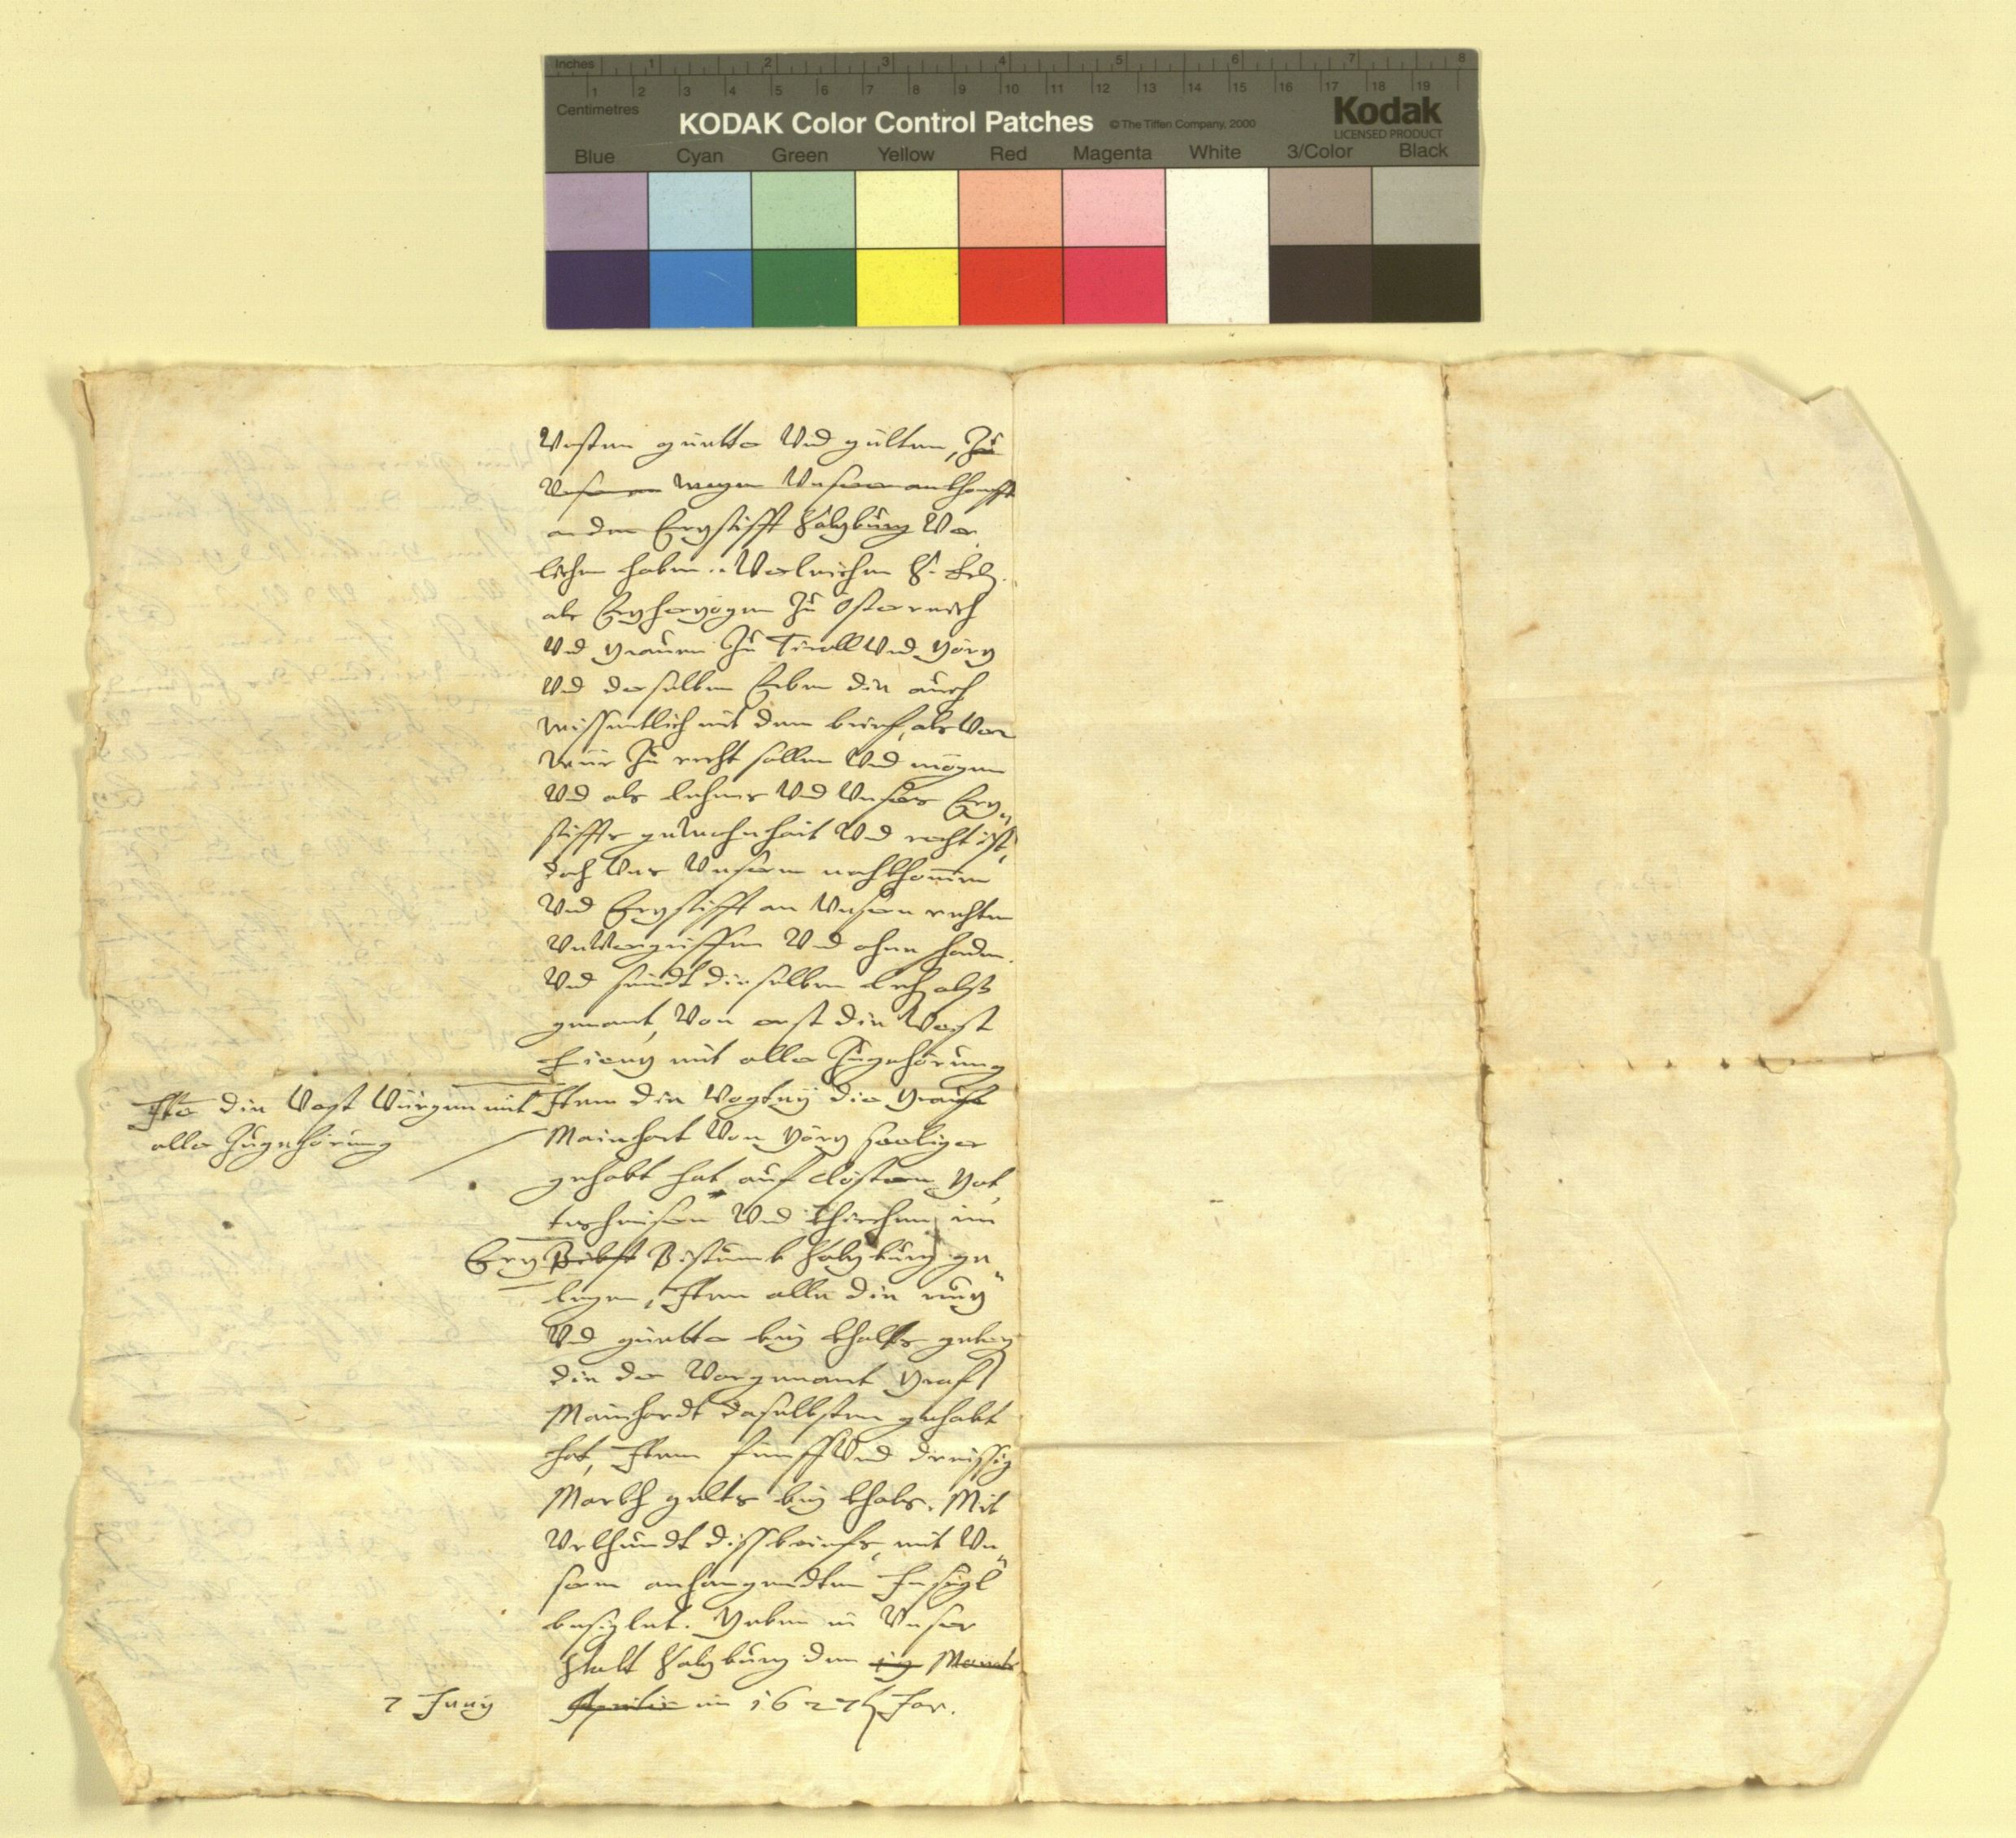 Inches 1 2 3 4 5 6 7 8
1 2 3 4 5 6 7 8 9 10 11 12 13 14 15 16 17 18 19
Centimetres
KODAK Color Control Patches © The Tiffen Company, 2000 Kodak
LICENSED PRODUCT
Blue Cyan Green Yellow Red Magenta White 3/Color Black
Vesten guetter Vnd gülten, Zu
wegen Vnserer ankhonfft
an den Erzstifft Salzburg Ver
lichen haben. Verleichen
als Erzherzogen Zu Österreich
Vnd Grauen Zu Tiroll Vnd Görz
Vnd derselben Erben die auch
wissentlich mit dem brief, als Vor
wür Zu recht sollen Vnd mögen
Vnd als lehens Vnd Vnsers Erz„
stiffts gewohnhait Vnd recht ist,
doch Vns Vnsern nachkhomen
Vnd Erzstifft an Vnsern rechten
Vnuergriffen Vnd ohne schaden.
Vnd seindt dieselben also
genant, Von erst die Vest
Lienz mit aller Zugehörung
Ite die Vest Würgen mit
aller Zugehörung
Item die Vogtey die Graf
Mainhart Von Görz seeliger
gehabt hat auf Clöstern Got,
tesheusern Vnd khirchen im
Erz Bistumb Salzburg ge„
legen, Item alle die
Vnd guetter bey
die der Vorgenant Graf
Mainhardt daselbsten gehabt
hat, Item fünff Vnd dreissig
Markh gelts bey Mit
Vrkhundt diss briefs, mit Vn„
serm anhangendten Insigl
besiglet. Geben in Vnser
Statt Salzburg den 19 Monats
7 Juny
Aprilis im 1627 Jar.